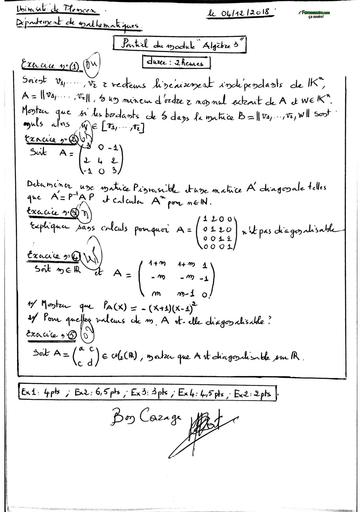 Université de Tlemcen
le 04/12/2018
Département de mathématiques
Partiel du module "Algèbre 3"
durée: 2 heures
Exercice n°(1)
Soient v₁, ..., vᵣ r vecteurs linéairement indépendants de Kⁿ,
A = ||v₁, ..., vᵣ||, δ un mineur d'ordre r non nul extrait de A et W ∈ Kⁿ.
Montrer que si les bordants de δ dans la matrice B = ||v₁, ..., vᵣ, W|| sont
nuls alors W ∈ [v₁, ..., vᵣ]
Exercice n°(2)
Soit A = ( 3 0 -1
2 4 2
-1 0 3 )
Déterminer une matrice P inversible et une matrice A' diagonale telles
que A' = P⁻¹AP et calculer Aⁿ pour n ∈ ℕ.
Exercice n°(3)
Expliquer sans calculs pourquoi A = ( 1 2 0 0
0 1 2 0
0 0 1 1
0 0 0 1 ) n'est pas diagonalisable
Exercice n°(4)
Soit m ∈ ℝ et A = ( 1+m 1+m 1
-m -m -1
m m-1 0 )
1/ Montrer que P_A(X) = -(X+1)(X-1)²
2/ Pour quelles valeurs de m, A est-elle diagonalisable ?
Exercice n°(5)
Soit A = ( a c
c d ) ∈ M₂(ℝ), montrer que A est diagonalisable sur ℝ.
Ex1: 4pts, Ex2: 6,5pts, Ex3: 3pts, Ex4: 4,5pts, Ex2: 2pts
Bon Courage